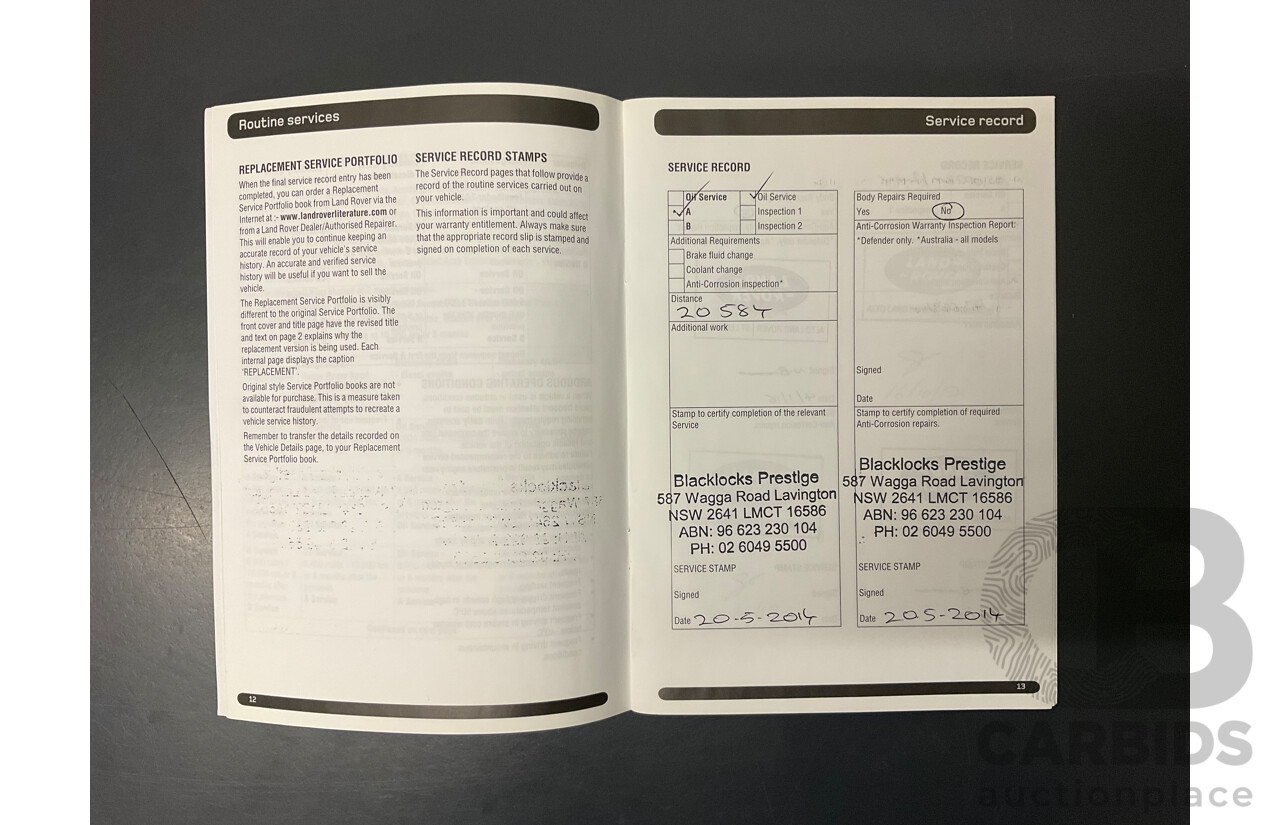 Routine services
REPLACEMENT SERVICE PORTFOLIO
When the final service record entry has been
completed, you can order a Replacement
Service Portfolio book from Land Rover via the
Internet at :- www.landroverliterature.com or
from a Land Rover Dealer/Authorised Repairer.
This will enable you to continue keeping an
accurate record of your vehicle's service
history. An accurate and verified service
history will be useful if you want to sell the
vehicle.
The Replacement Service Portfolio is visibly
different to the original Service Portfolio. The
front cover and title page have the revised title
and text on page 2 explains why the
replacement version is being used. Each
internal page displays the caption
'REPLACEMENT'.
Original style Service Portfolio books are not
available for purchase. This is a measure taken
to counteract fraudulent attempts to recreate a
vehicle service history.
Remember to transfer the details recorded on
the Vehicle Details page, to your Replacement
Service Portfolio book.
SERVICE RECORD STAMPS
The Service Record pages that follow provide a
record of the routine services carried out on
your vehicle.
This information is important and could affect
your warranty entitlement. Always make sure
that the appropriate record slip is stamped and
signed on completion of each service.
12
Service record
SERVICE RECORD
Oil Service
Oil Service
A
Inspection 1
B
Inspection 2
Additional Requirements
Brake fluid change
Coolant change
Anti-Corrosion inspection*
Distance
20 584
Additional work
Stamp to certify completion of the relevant
Service
Blacklocks Prestige
587 Wagga Road Lavington
NSW 2641 LMCT 16586
ABN: 96 623 230 104
PH: 02 6049 5500
SERVICE STAMP
Signed
Date 20-5-2014
Body Repairs Required
Yes No
Anti-Corrosion Warranty Inspection Report:
*Defender only. *Australia - all models
Signed
Date
Stamp to certify completion of required
Anti-Corrosion repairs.
Blacklocks Prestige
587 Wagga Road Lavington
NSW 2641 LMCT 16586
ABN: 96 623 230 104
PH: 02 6049 5500
SERVICE STAMP
Signed
Date 205-2014
13
CB
CARBIDS
auctionplace